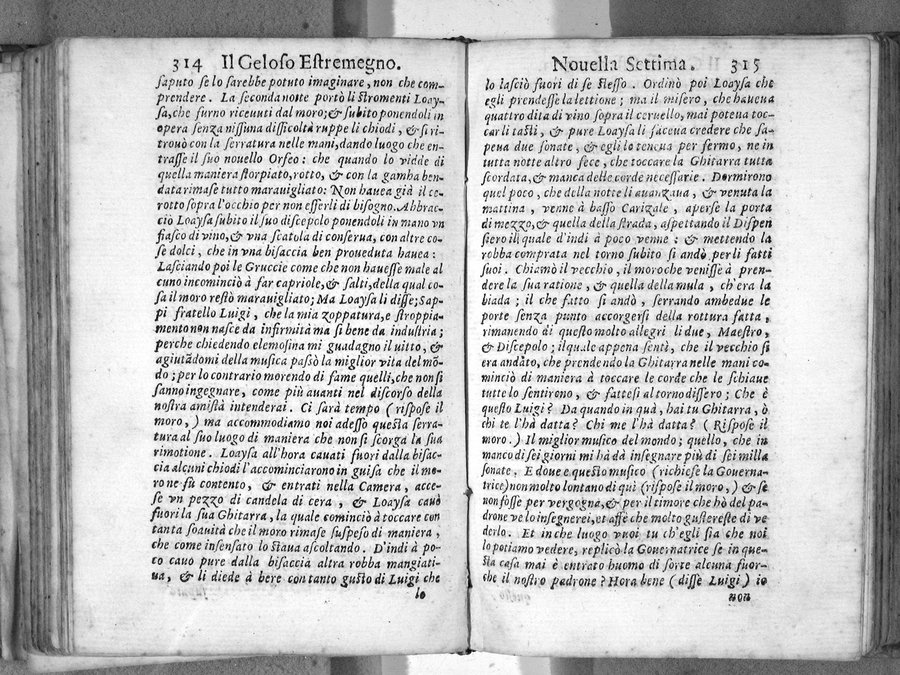 314 Il Geloso Estremegno.
saputo se lo sarebbe potuto imaginare, non che com-
prendere. La seconda notte portò li stromenti Loay-
sa, che furno riceuuti dal moro; & subito ponendoli in
opera senza nissuna difficoltà ruppe li chiodi, & si ri-
trouò con la serratura nelle mani, dando luogo che en-
trasse il suo nouello Orfeo: che quando lo vidde di
quella maniera storpiato, rotto, & con la gamba ben-
data rimase tutto marauigliato: Non hauea già il ce-
rotto sopra l'occhio per non esserli di bisogno. Abbrac-
ciò Loaysa subito il suo discepolo ponendoli in mano vn
fiasco di vino, & vna scatola di conserua, con altre co-
se dolci, che in vna bisaccia ben proueduta hauea:
Lasciando poi le Gruccie come che non hauesse male al
cuno incominciò à far capriole, & salti, della qual co-
sa il moro restò marauigliato; Ma Loaysa li disse; Sap-
pi fratello Luigi, che la mia zoppatura, e stroppia-
mento non nasce da infirmità ma si bene da industria;
perche chiedendo elemosina mi guadagno il uitto, &
agiutãdomi della musica passò la miglior vita del mõ-
do; per lo contrario morendo di fame quelli, che non si
sanno ingegnare, come più auanti nel discorso della
nostra amistà intenderai. Ci sarà tempo (rispose il
moro,) ma accommodiamo noi adesso questa serra-
tura al suo luogo di maniera che non si scorga la sua
rimotione. Loaysa all'hora cauati fuori dalla bisac-
cia alcuni chiodi l'accominciarono in guisa che il mo-
ro ne fù contento, & entrati nella Camera, acce-
se vn pezzo di candela di cera, & Loaysa cauò
fuori la sua Ghitarra, la quale cominciò à toccare con
tanta soauità che il moro rimase suspeso di maniera,
che come insensato lo staua ascoltando. D'indi à po-
co cauo pure dalla bisaccia altra robba mangiati-
ua, & li diede à bere con tanto gusto di Luigi che
lo
Nouella Settima. 315
lo lasciò fuori di se stesso. Ordinò poi Loaysa che
egli prendesse la lettione; ma il misero, che haueua
quattro dita di vino sopra il ceruello, mai potena toc-
car li tasti, & pure Loaysa li faceua credere che sa-
peua due sonate, & egli lo teneua per fermo, ne in
tutta notte altro fece, che toccare la Ghitarra tutta
scordata, & manca delle corde necessarie. Dormirono
quel poco, che della notte li auanzaua, & venuta la
mattina, venne à basso Carizale, aperse la porta
di mezzo, & quella della strada, aspettando il Dispen
siero il quale d'indi à poco venne: & mettendo la
robba comprata nel torno subito si andò per li fatti
suoi. Chiamò il vecchio, il moro che venisse à pren-
dere la sua ratione, & quella della mula, ch'era la
biada; il che fatto si andò, serrando ambedue le
porte senza punto accorgersi della rottura fatta,
rimanendo di questo molto allegri li due, Maestro,
& Discepolo; il quale appena sentì, che il vecchio si
era andato, che prendendo la Ghitarra nelle mani co-
minciò di maniera à toccare le corde che le schiaue
tutte lo sentirono, & fattesi al torno dissero; Che è
questo Luigi? Da quando in quà, hai tu Ghitarra, ò
chi te l'hà datta? Chi me l'hà datta? (Rispose il
moro.) Il miglior musico del mondo; quello, che in
manco di sei giorni mi hà da insegnare più di sei milla
sonate. E doue e questo musico (richiese la Gouerna-
trice) non molto lontano di quì (rispose il moro,) & se
non fosse per vergogna, & per il timore che hò del pa-
drone ve lo insegnerei, et affè che molto gustereste di ve-
derlo. Et in che luogo vuoi tu ch'egli sia che noi
lo potiamo vedere, replicò la Gouernatrice se in que-
sta casa mai è entrato huomo di sorte alcuna fuor-
che il nostro padrone? Hora bene (disse Luigi) io
non